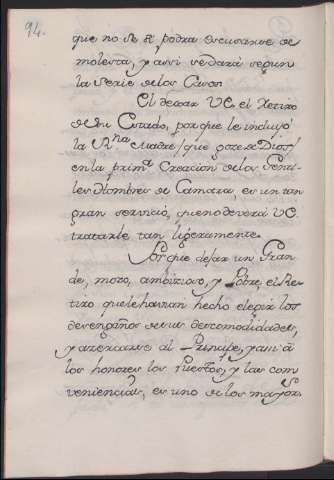 94.
que no se le podra escusarse de
molesta, y assi se dará segun
la serie de los Casos.
El dexar VE. el Retiro
de su Estado, por que le incluyó
la R.na Madre (que goze de Dios)
en la prim.a Creacion de los Genti-
les Hombres de Camara, es un tan
gran servicio, que no deverá VE.
tratarle tan ligeramente.
Por que dejar un Gran
de, mozo, ambicioso, y Pobre, el Re-
tiro que le havian hecho elegir los
desengaños de sus descomodidades,
y acercarse al Principe, y assi á
los honores los Puestos, y las com
veniencias, es uno de los mayor.s